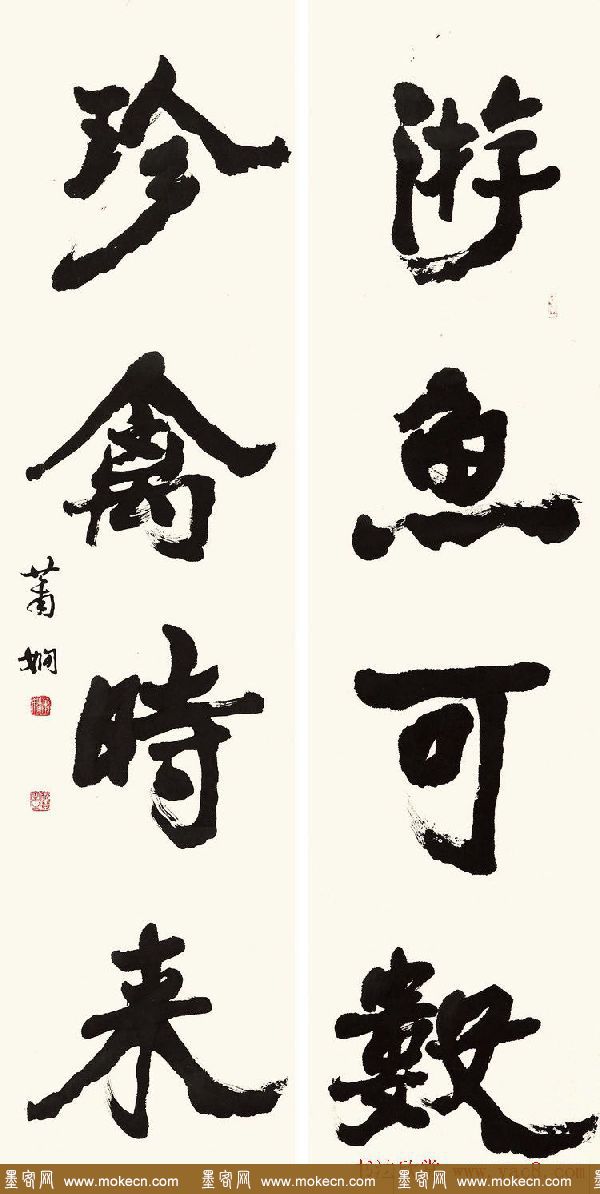 游魚可數
珍禽時来
蕭嫻
www.yac8.com
墨客网 www.mokecn.com 墨客网 www.mokecn.com 墨客网 www.mokecn.com 墨客网